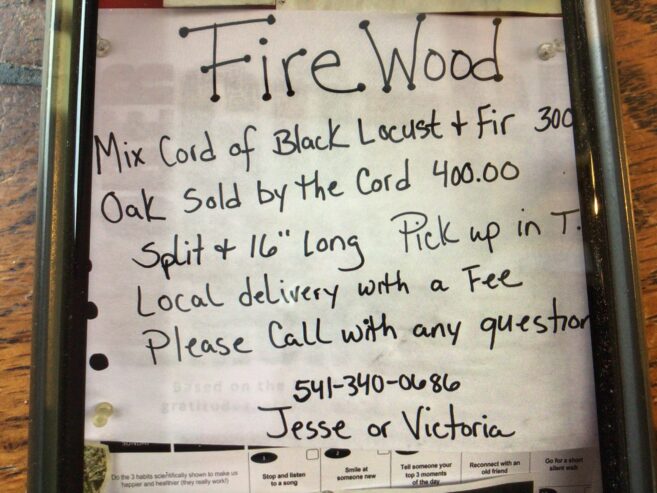 Fire Wood
Mix Cord of Black Locust + Fir 300
Oak Sold by the Cord 400.00
Split + 16" Long Pick up in T.
Local delivery with a Fee
Please Call with any question
Based on the
gratitud
541-340-0686
Jesse or Victoria
SUNDAY
Do the 3 habits scientifically shown to make us
happier and healthier (they really work!)
Stop and listen
to a song
Smile at
someone new
Tell someone your
top 3 moments
of the day
Reconnect with an
old friend
Go for a short
silent walk